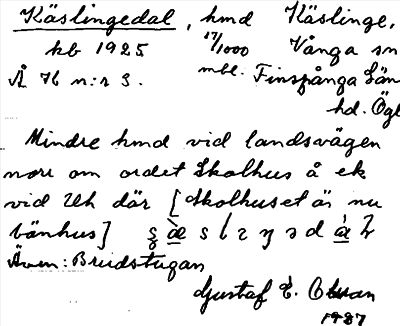 Käslingedal, hmd Käslinge,
kb 1925 17/1000 Vånga sn
Å K n:r 3. mbl. Finspånga län
hd. Ögl
Mindre hmd vid landsvägen
norr om ordet Skolhus å ek
vid Uh där [Skolhuset är nu
bönhus]
Även: Brudstugan
Gustaf E. Olsson
1937